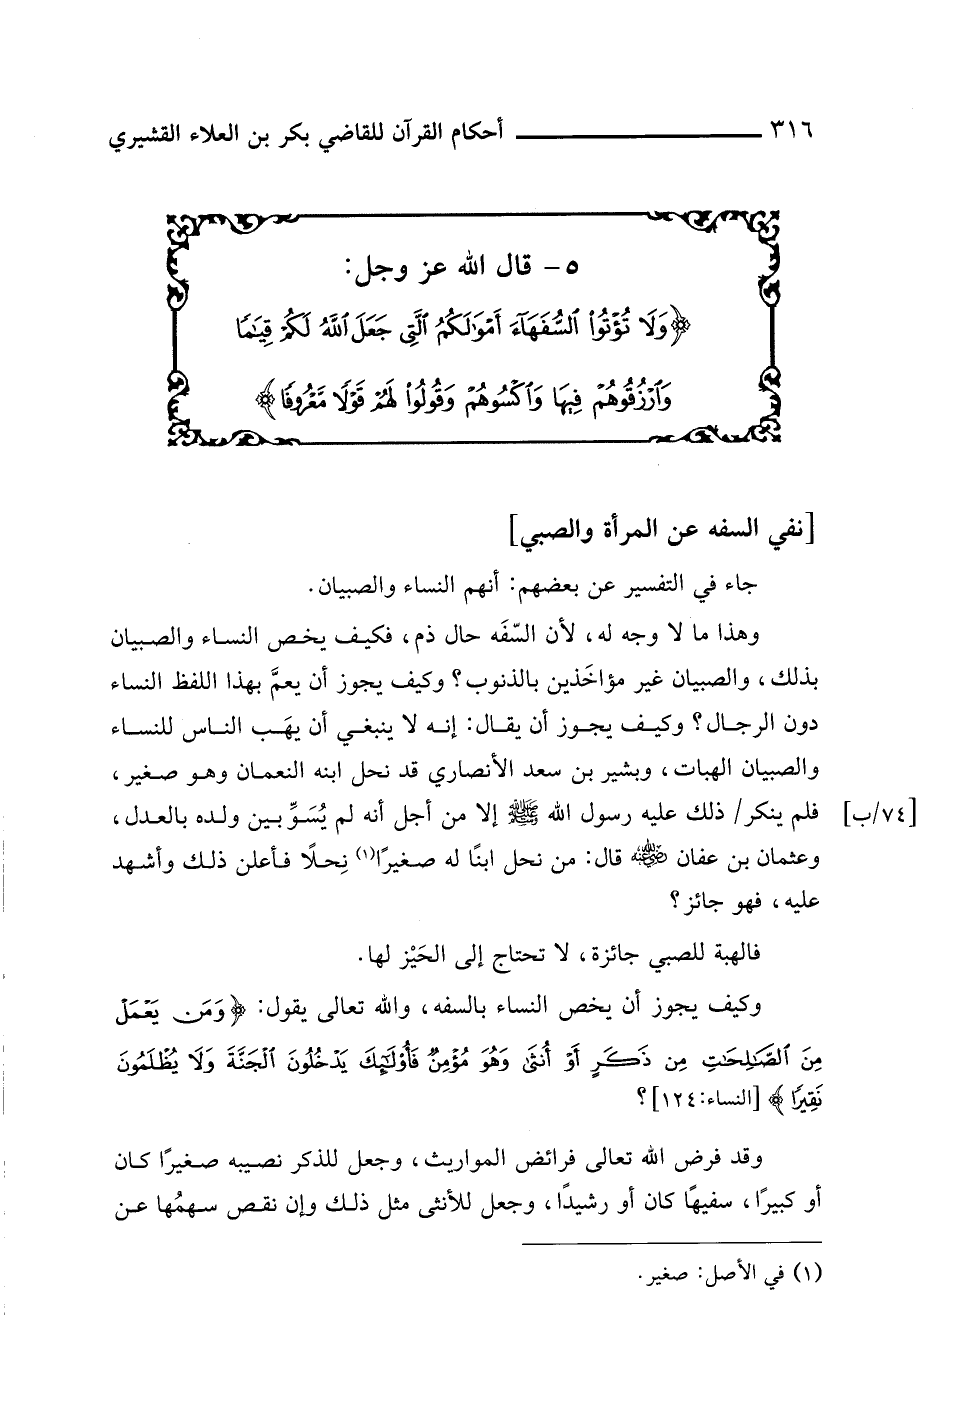 ٣١٦ أحكام القرآن للقاضي بكر بن العلاء القشيري
٥ - قال الله عز وجل:
﴿وَلَا تُؤْتُوا۟ ٱلسُّفَهَآءَ أَمْوَٰلَكُمُ ٱلَّتِى جَعَلَ ٱللَّهُ لَكُمْ قِيَٰمًا
وَٱرْزُقُوهُمْ فِيهَا وَٱكْسُوهُمْ وَقُولُوا۟ لَهُمْ قَوْلًا مَّعْرُوفًا﴾
[نفي السفه عن المرأة والصبي]
جاء في التفسير عن بعضهم: أنهم النساء والصبيان.
وهذا ما لا وجه له، لأن السَّفَه حال ذم، فكيف يخص النساء والصبيان
بذلك، والصبيان غير مؤاخَذين بالذنوب؟ وكيف يجوز أن يعمَّ بهذا اللفظ النساء
دون الرجال؟ وكيف يجوز أن يقال: إنه لا ينبغي أن يهَب الناس للنساء
والصبيان الهبات، وبشير بن سعد الأنصاري قد نحل ابنه النعمان وهو صغير،
[٧٤/ب] فلم ينكر/ ذلك عليه رسول الله ﷺ إلا من أجل أنه لم يُسَوِّ بين ولده بالعدل،
وعثمان بن عفان رضي الله عنه قال: من نحل ابنًا له صغيرًا(١) نِحلًا فأعلن ذلك وأشهد
عليه، فهو جائز؟
فالهبة للصبي جائزة، لا تحتاج إلى الحَيْز لها.
وكيف يجوز أن يخص النساء بالسفه، والله تعالى يقول: ﴿وَمَن يَعْمَلْ
مِنَ ٱلصَّٰلِحَٰتِ مِن ذَكَرٍ أَوْ أُنثَىٰ وَهُوَ مُؤْمِنٌ فَأُو۟لَٰٓئِكَ يَدْخُلُونَ ٱلْجَنَّةَ وَلَا يُظْلَمُونَ
نَقِيرًا﴾ [النساء:١٢٤]؟
وقد فرض الله تعالى فرائض المواريث، وجعل للذكر نصيبه صغيرًا كان
أو كبيرًا، سفيهًا كان أو رشيدًا، وجعل للأنثى مثل ذلك وإن نقص سهمُها عن
(١) في الأصل: صغير.